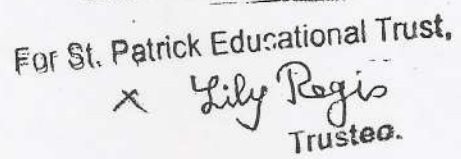 For St. Patrick Educational Trust,
x Lily Regis
Trustee.